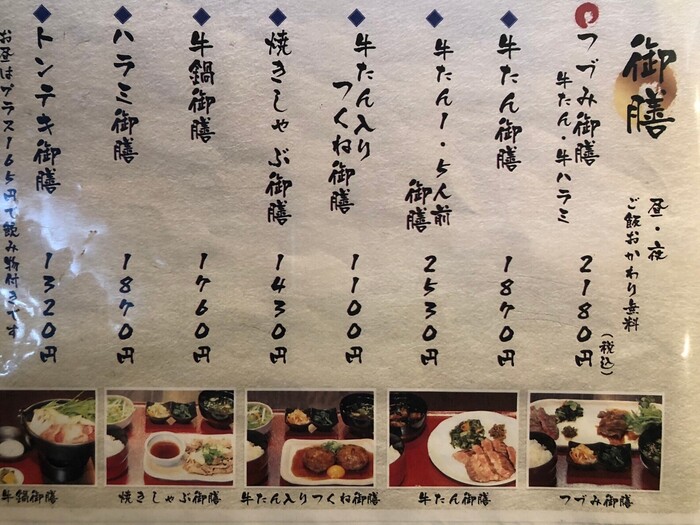 御膳
昼・夜
ご飯おかわり無料
つづみ御膳
牛たん・牛ハラミ
2180円
(税込)
牛たん御膳
1870円
牛たん1.5人前
御膳
2530円
牛たん入り
つくね御膳
1100円
焼きしゃぶ御膳
1430円
牛鍋御膳
1760円
ハラミ御膳
1870円
トンテキ御膳
1320円
お昼はプラス165円で飲み物付きです
牛鍋御膳
焼きしゃぶ御膳
牛たん入りつくね御膳
牛たん御膳
つづみ御膳